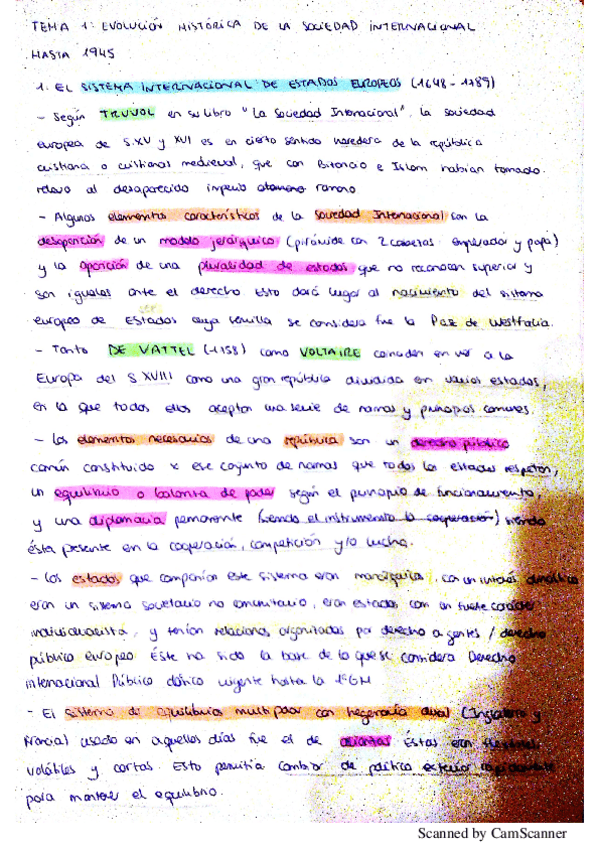 TEMA 1: EVOLUCIÓN HISTÓRICA DE LA SOCIEDAD INTERNACIONAL
HASTA 1945
1. EL SISTEMA INTERNACIONAL DE ESTADOS EUROPEOS (1648-1789)
- Según TRUYOL en su libro "La Sociedad Internacional", la sociedad
europea de S.XV y XVI es en cierto sentido heredera de la república
cristiana o cristianas medieval, que con Bizancio e Islam habían tomado
relevo al desaparecido imperio romano
- Algunos elementos característicos de la Sociedad Internacional son la
desaparición de un modelo jerárquico (pirámide con 2 cabezas: emperador y papa)
y la aparición de una pluralidad de estados que no reconocen superior y
son iguales ante el derecho. Esto dará lugar al nacimiento del sistema
europeo de Estados cuya semilla se considera fue la Paz de Westfalia.
- Tanto DE VATTEL (1758) como VOLTAIRE coinciden en ver a la
Europa del S.XVIII como una gran república dividida en varios estados,
en la que todos ellos aceptan una serie de normas y principios comunes.
- Los elementos necesarios de una república son un derecho público
común constituido x ese conjunto de normas que todos los estados respetan,
un equilibrio o balanza de poder según el principio de funcionamiento,
y una diplomacia permanente (siendo el instrumento la cooperación) siendo
ésta presente en la cooperación, competición y/o lucha.
- Los estados que componían este sistema eran monárquicos, con un interés dinástico
eran un sistema societario no comunitario, eran estados con un fuerte carácter
individualista, y tenían relaciones organizadas por derecho a gentes / derecho
público europeo. Éste ha sido la base de lo que se considera Derecho
internacional Público clásico vigente hasta la 1ªGM
- El sistema de equilibrios multipolar con hegemonía dual (Inglaterra y
Francia) usado en aquellos días fue el de alianzas. Éstas eran flexibles,
volátiles y cortas. Esto permitía cambiar de política exterior rápidamente
para mantener el equilibrio.
Scanned by CamScanner